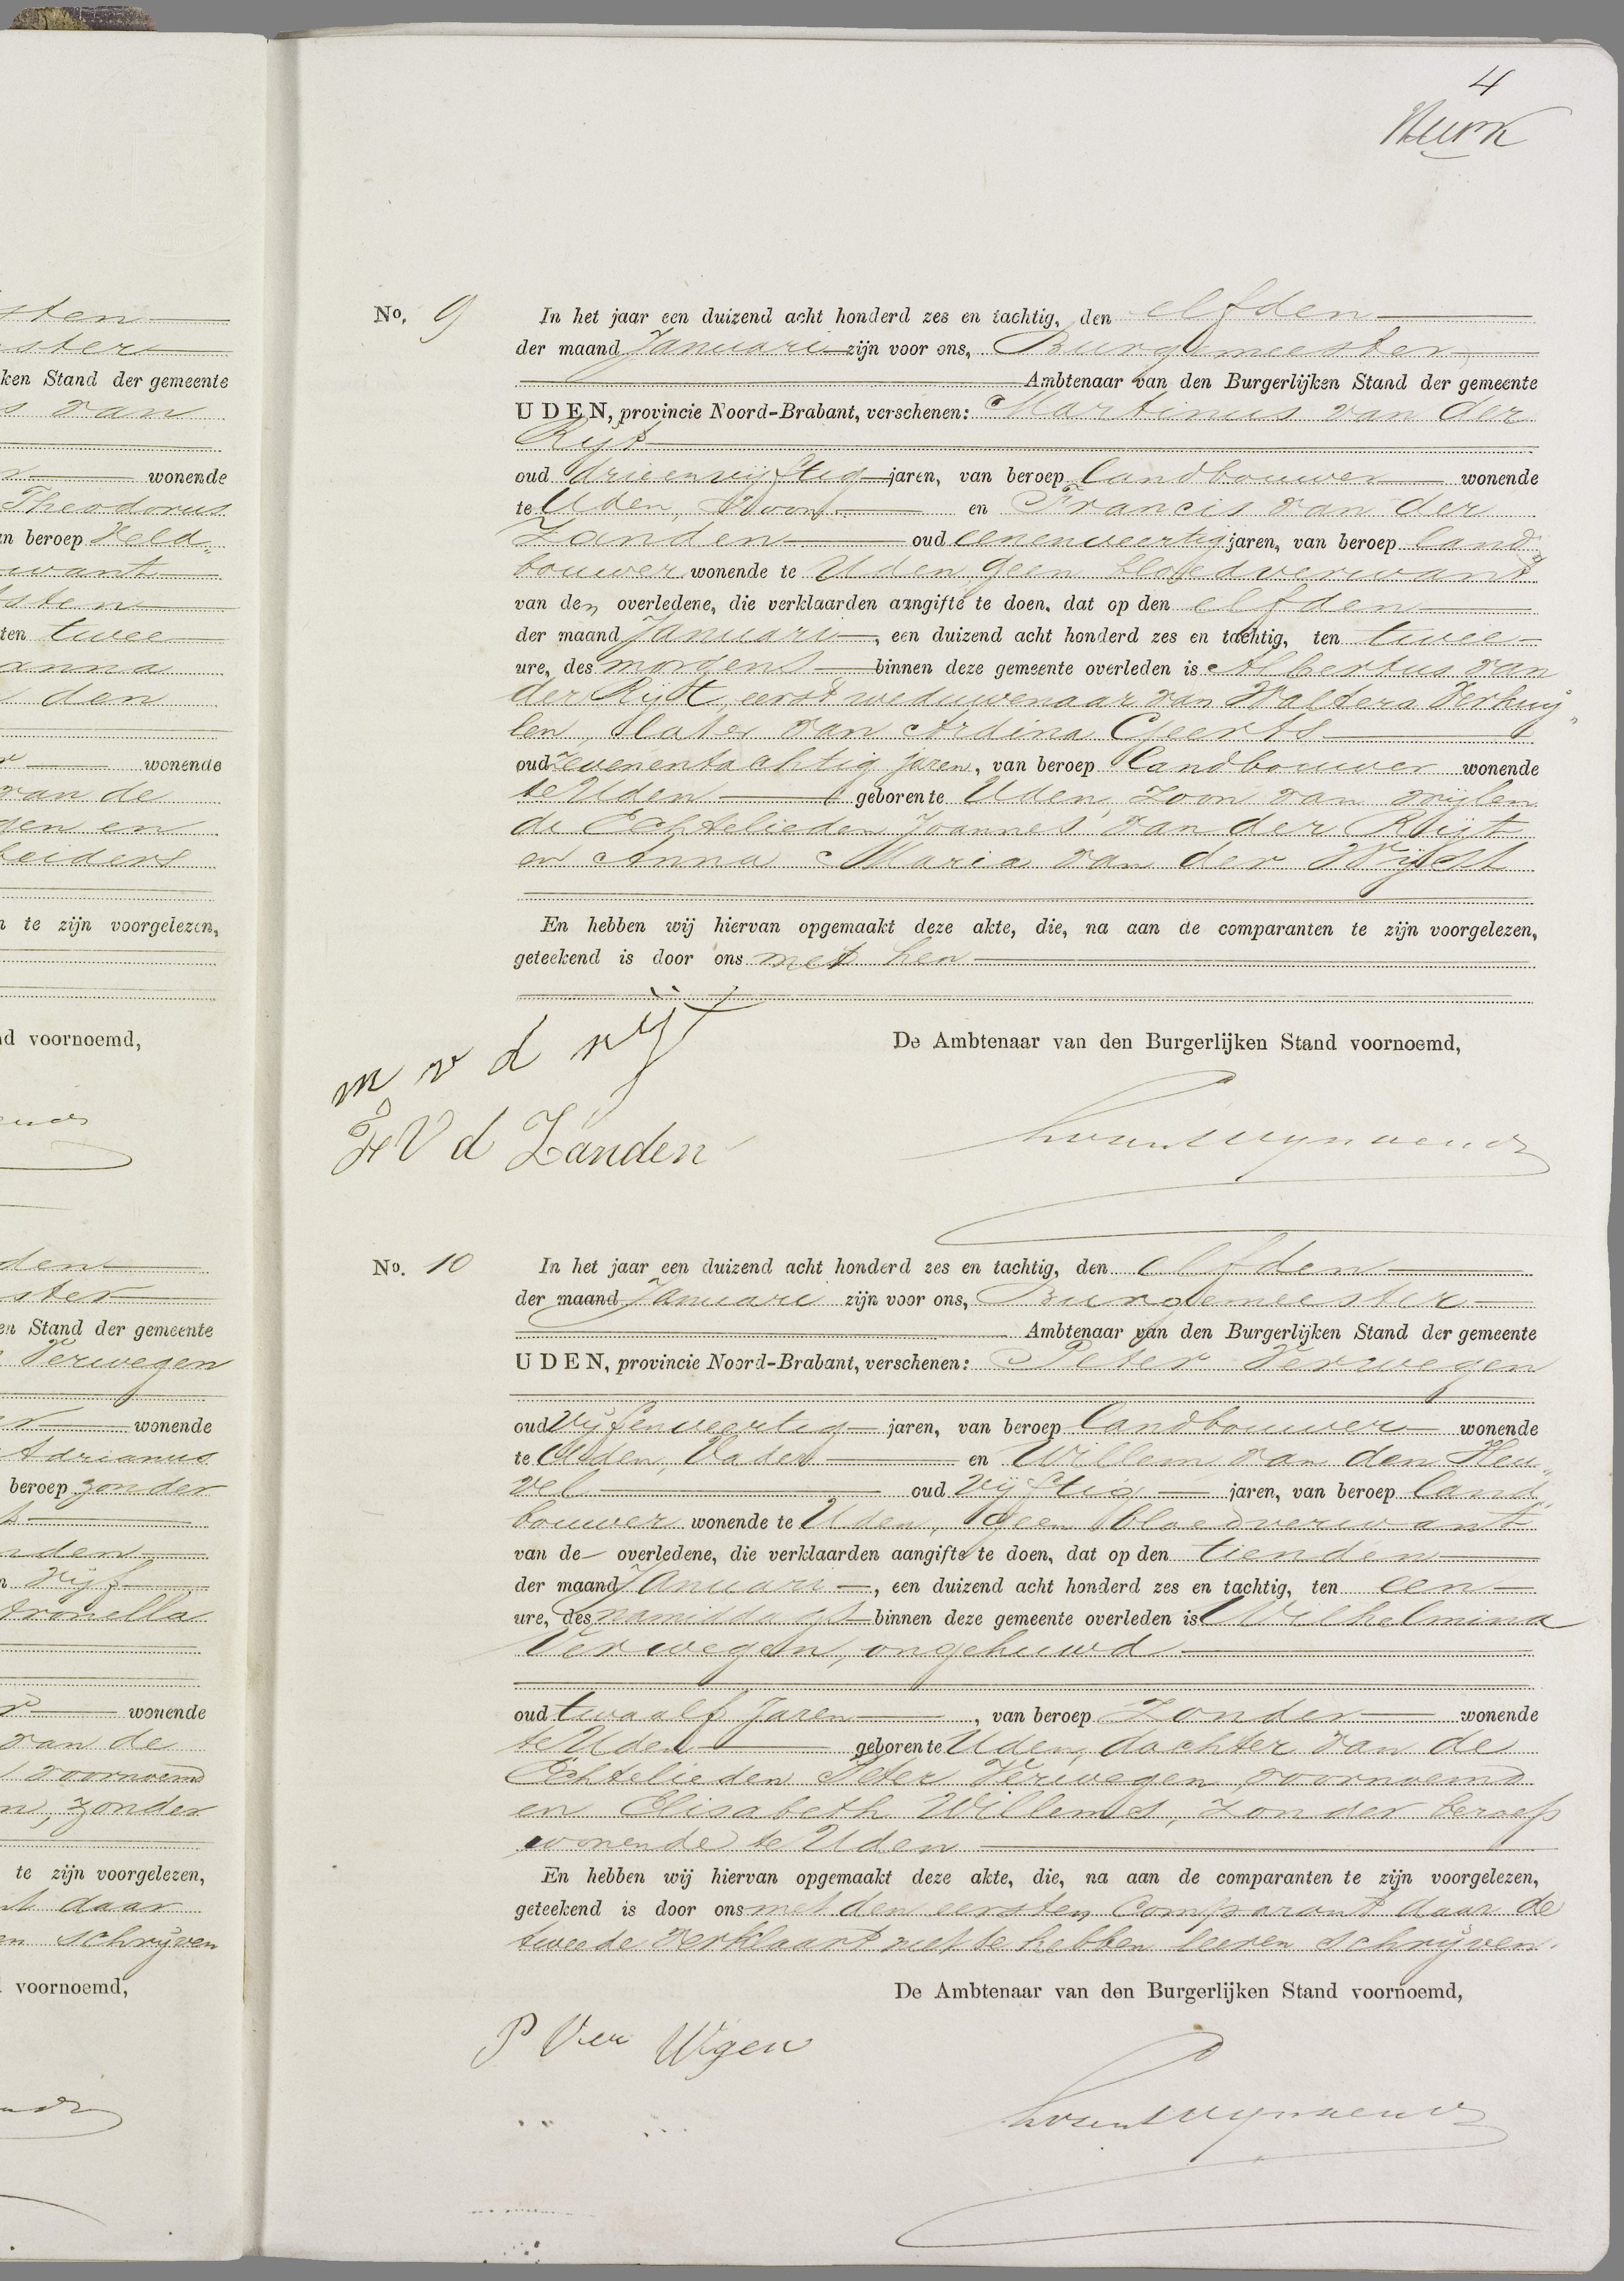 sten
ster
ken Stand der gemeente
s van
r wonende
Theodorus
n beroep Veld„
want
sten
ten twee
anna
den
wonende
van de
gen en
beiders
te zijn voorgelezen,
d voornoemd,
den
ster
en Stand der gemeente
Verwegen
wonende
Adrianus
beroep zonder
nden
n vijf
tronella
wonende
van de
voornoemd
n, zonder
te zijn voorgelezen,
daar
en schrijven
voornoemd,
4
No. 9 In het jaar een duizend acht honderd zes en tachtig, den elfden
der maand Januari zijn voor ons, Burgemeester
Ambtenaar van den Burgerlijken Stand der gemeente
UDEN, provincie Noord-Brabant, verschenen: Martinus van der
Rijt
oud drieenvijftig jaren, van beroep landbouwer wonende
te Uden, Zoon en Francis van der
Zanden oud eenenveertig jaren, van beroep land„
bouwer wonende te Uden, geen bloedverwant
van den overledene, die verklaarden aangifte te doen, dat op den elfden
der maand Januari, een duizend acht honderd zes en tachtig, ten twee
ure, des morgens binnen deze gemeente overleden is Albertus van
der Rijt, eerst weduwenaar van Waltera Verkuij„
len, later van Ardina Geerts
oud zevenentachtig jaren, van beroep Landbouwer wonende
te Uden geboren te Uden, zoon van wijlen
de Echtelieden Joannes van der Rijt
en Anna Maria van der
En hebben wij hiervan opgemaakt deze akte, die, na aan de comparanten te zijn voorgelezen,
geteekend is door ons met hen
De Ambtenaar van den Burgerlijken Stand voornoemd,
m v d rijt
F V d Zanden
No. 10 In het jaar een duizend acht honderd zes en tachtig, den elfden
der maand Januari zijn voor ons, Burgemeester
Ambtenaar van den Burgerlijken Stand der gemeente
UDEN, provincie Noord-Brabant, verschenen: Peter Verwegen
oud Vijfenveertig jaren, van beroep landbouwer wonende
te Uden, Vader en Willem van den Heu„
vel oud Vijftig jaren, van beroep land„
bouwer wonende te Uden, geen bloedverwant
van de overledene, die verklaarden aangifte te doen, dat op den tienden
der maand Januari, een duizend acht honderd zes en tachtig, ten een
ure, des namiddags binnen deze gemeente overleden is Wilhelmina
Verwegen, ongehuwd
oud twaalf Jaren, van beroep Zonder wonende
te Uden geboren te Uden, dochter van de
Echtelieden Peter Verwegen voornoemd
en Elisabeth Willems, zonder beroep
wonende te Uden
En hebben wij hiervan opgemaakt deze akte, die, na aan de comparanten te zijn voorgelezen,
geteekend is door ons met den eersten Comparant daar de
tweede verklaart niet te hebben leeren schrijven.
De Ambtenaar van den Burgerlijken Stand voornoemd,
P Ver Wgen